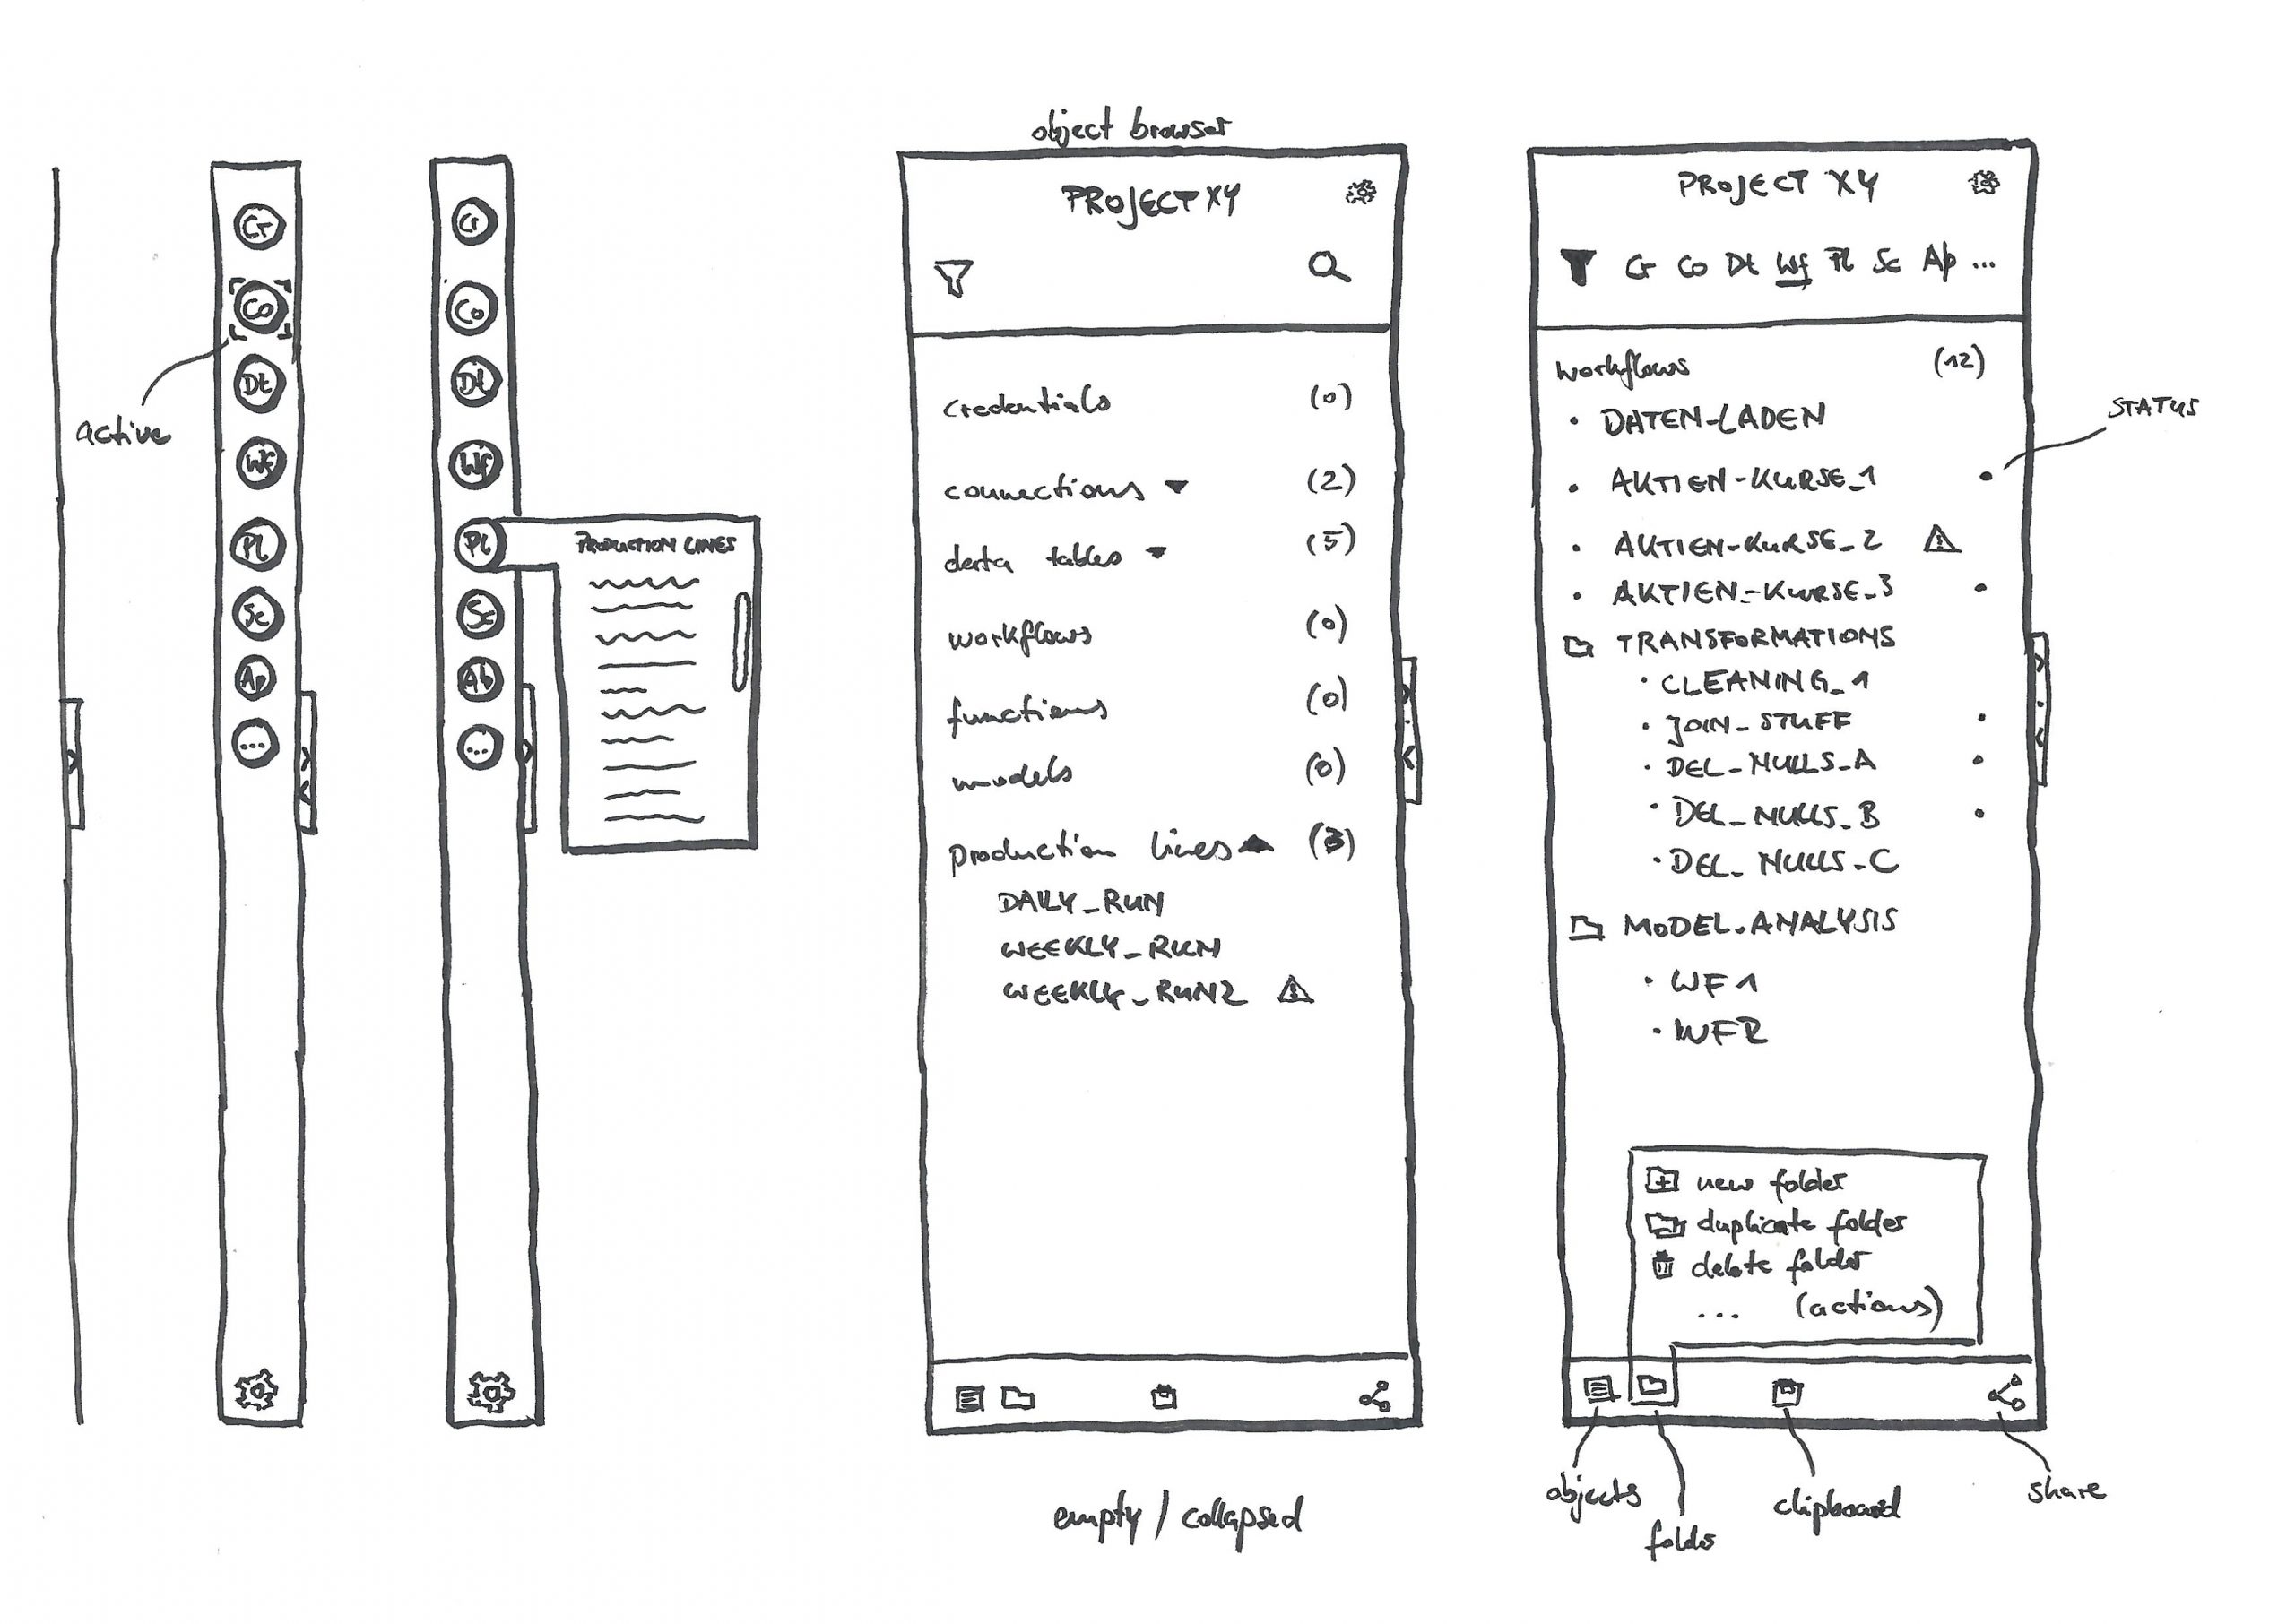 active
Cr
Co
Dt
Wf
Pl
Sc
Ap
...
Cr
Co
Dt
Wf
Pl
Sc
Ab
...
PRODUCTION LINES
object browser
PROJECT XY
credentials (0)
connections (2)
data tables (5)
workflows (0)
functions (0)
models (0)
production lines (3)
DAILY_RUN
WEEKLY_RUN
WEEKLY_RUN2
empty / collapsed
PROJECT XY
Cr Co Dt Wf Pl Sc Ap ...
workflows (12)
• DATEN-LADEN
STATUS
• AKTIEN-KURSE_1
• AKTIEN-KURSE_2
• AKTIEN-KURSE_3
TRANSFORMATIONS
• CLEANING_1
• JOIN_STUFF
• DEL_NULLS_A
• DEL_NULLS_B
• DEL_NULLS_C
MODEL_ANALYSIS
• WF1
• WF2
new folder
duplicate folder
delete folder
... (actions)
objects
folder
clipboard
share